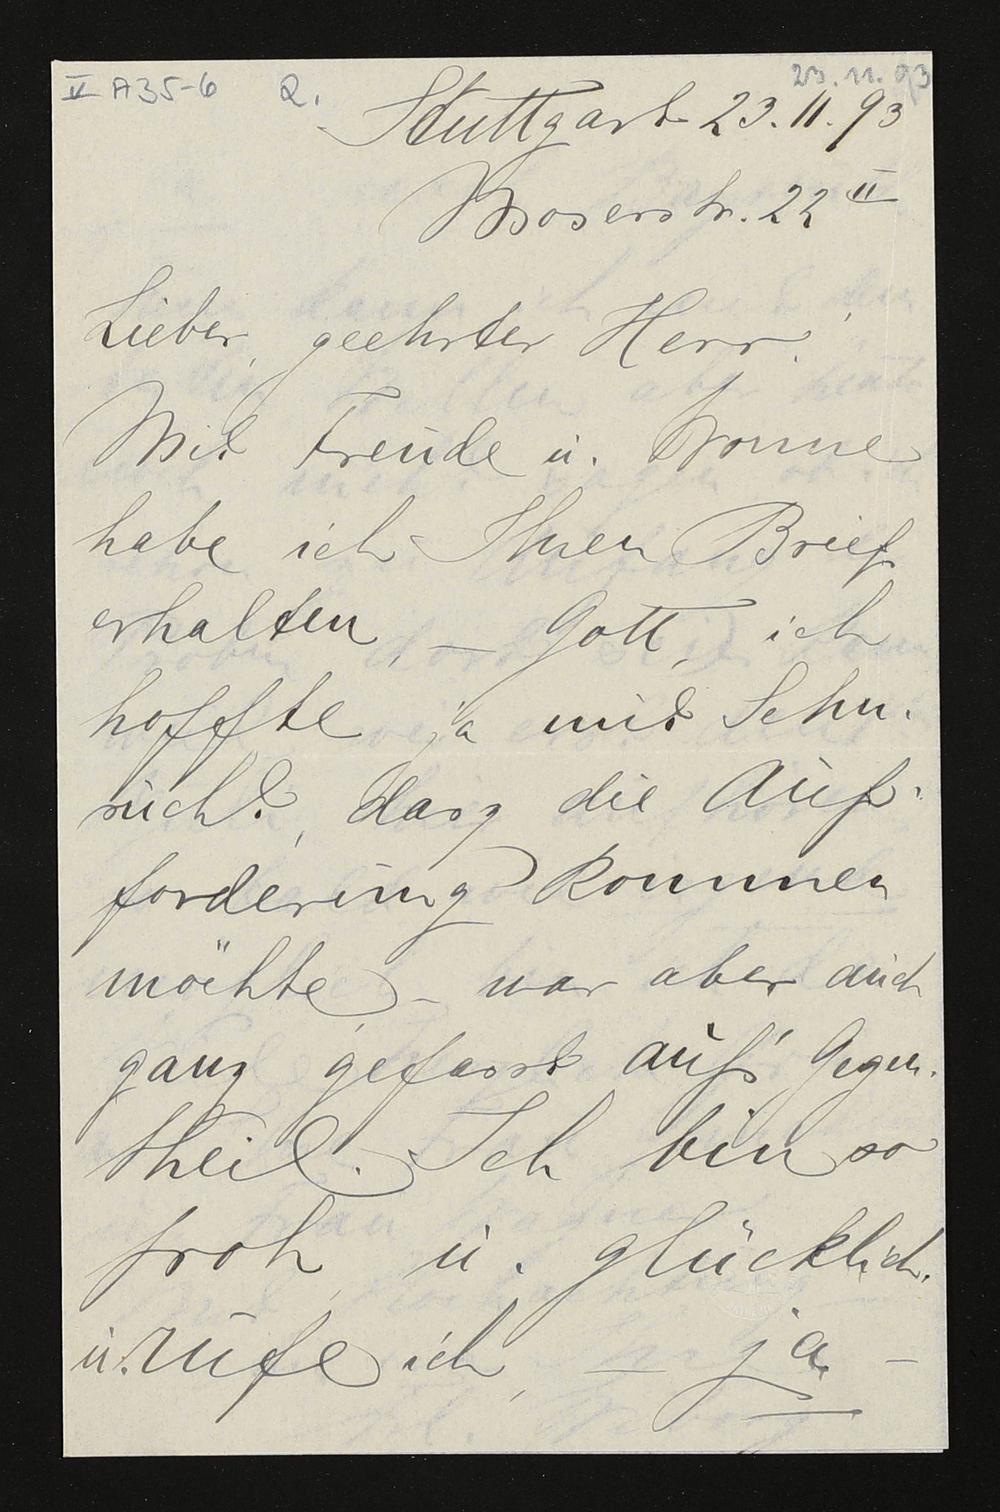 V A35-6 2. 23.11.93
Stuttgart 23.11.93
Moserstr. 22 II
Lieber, geehrter Herr!
Mit Freude u. Wonne
habe ich Ihren Brief
erhalten, – Gott, ich
hoffte ja mit Sehn-
sucht, dass die Auf-
forderung kommen
möchte, – war aber auch
ganz gefasst auf's Gegen-
theil. Ich bin so
froh u. glücklich,
u. rufe ich, – ja –